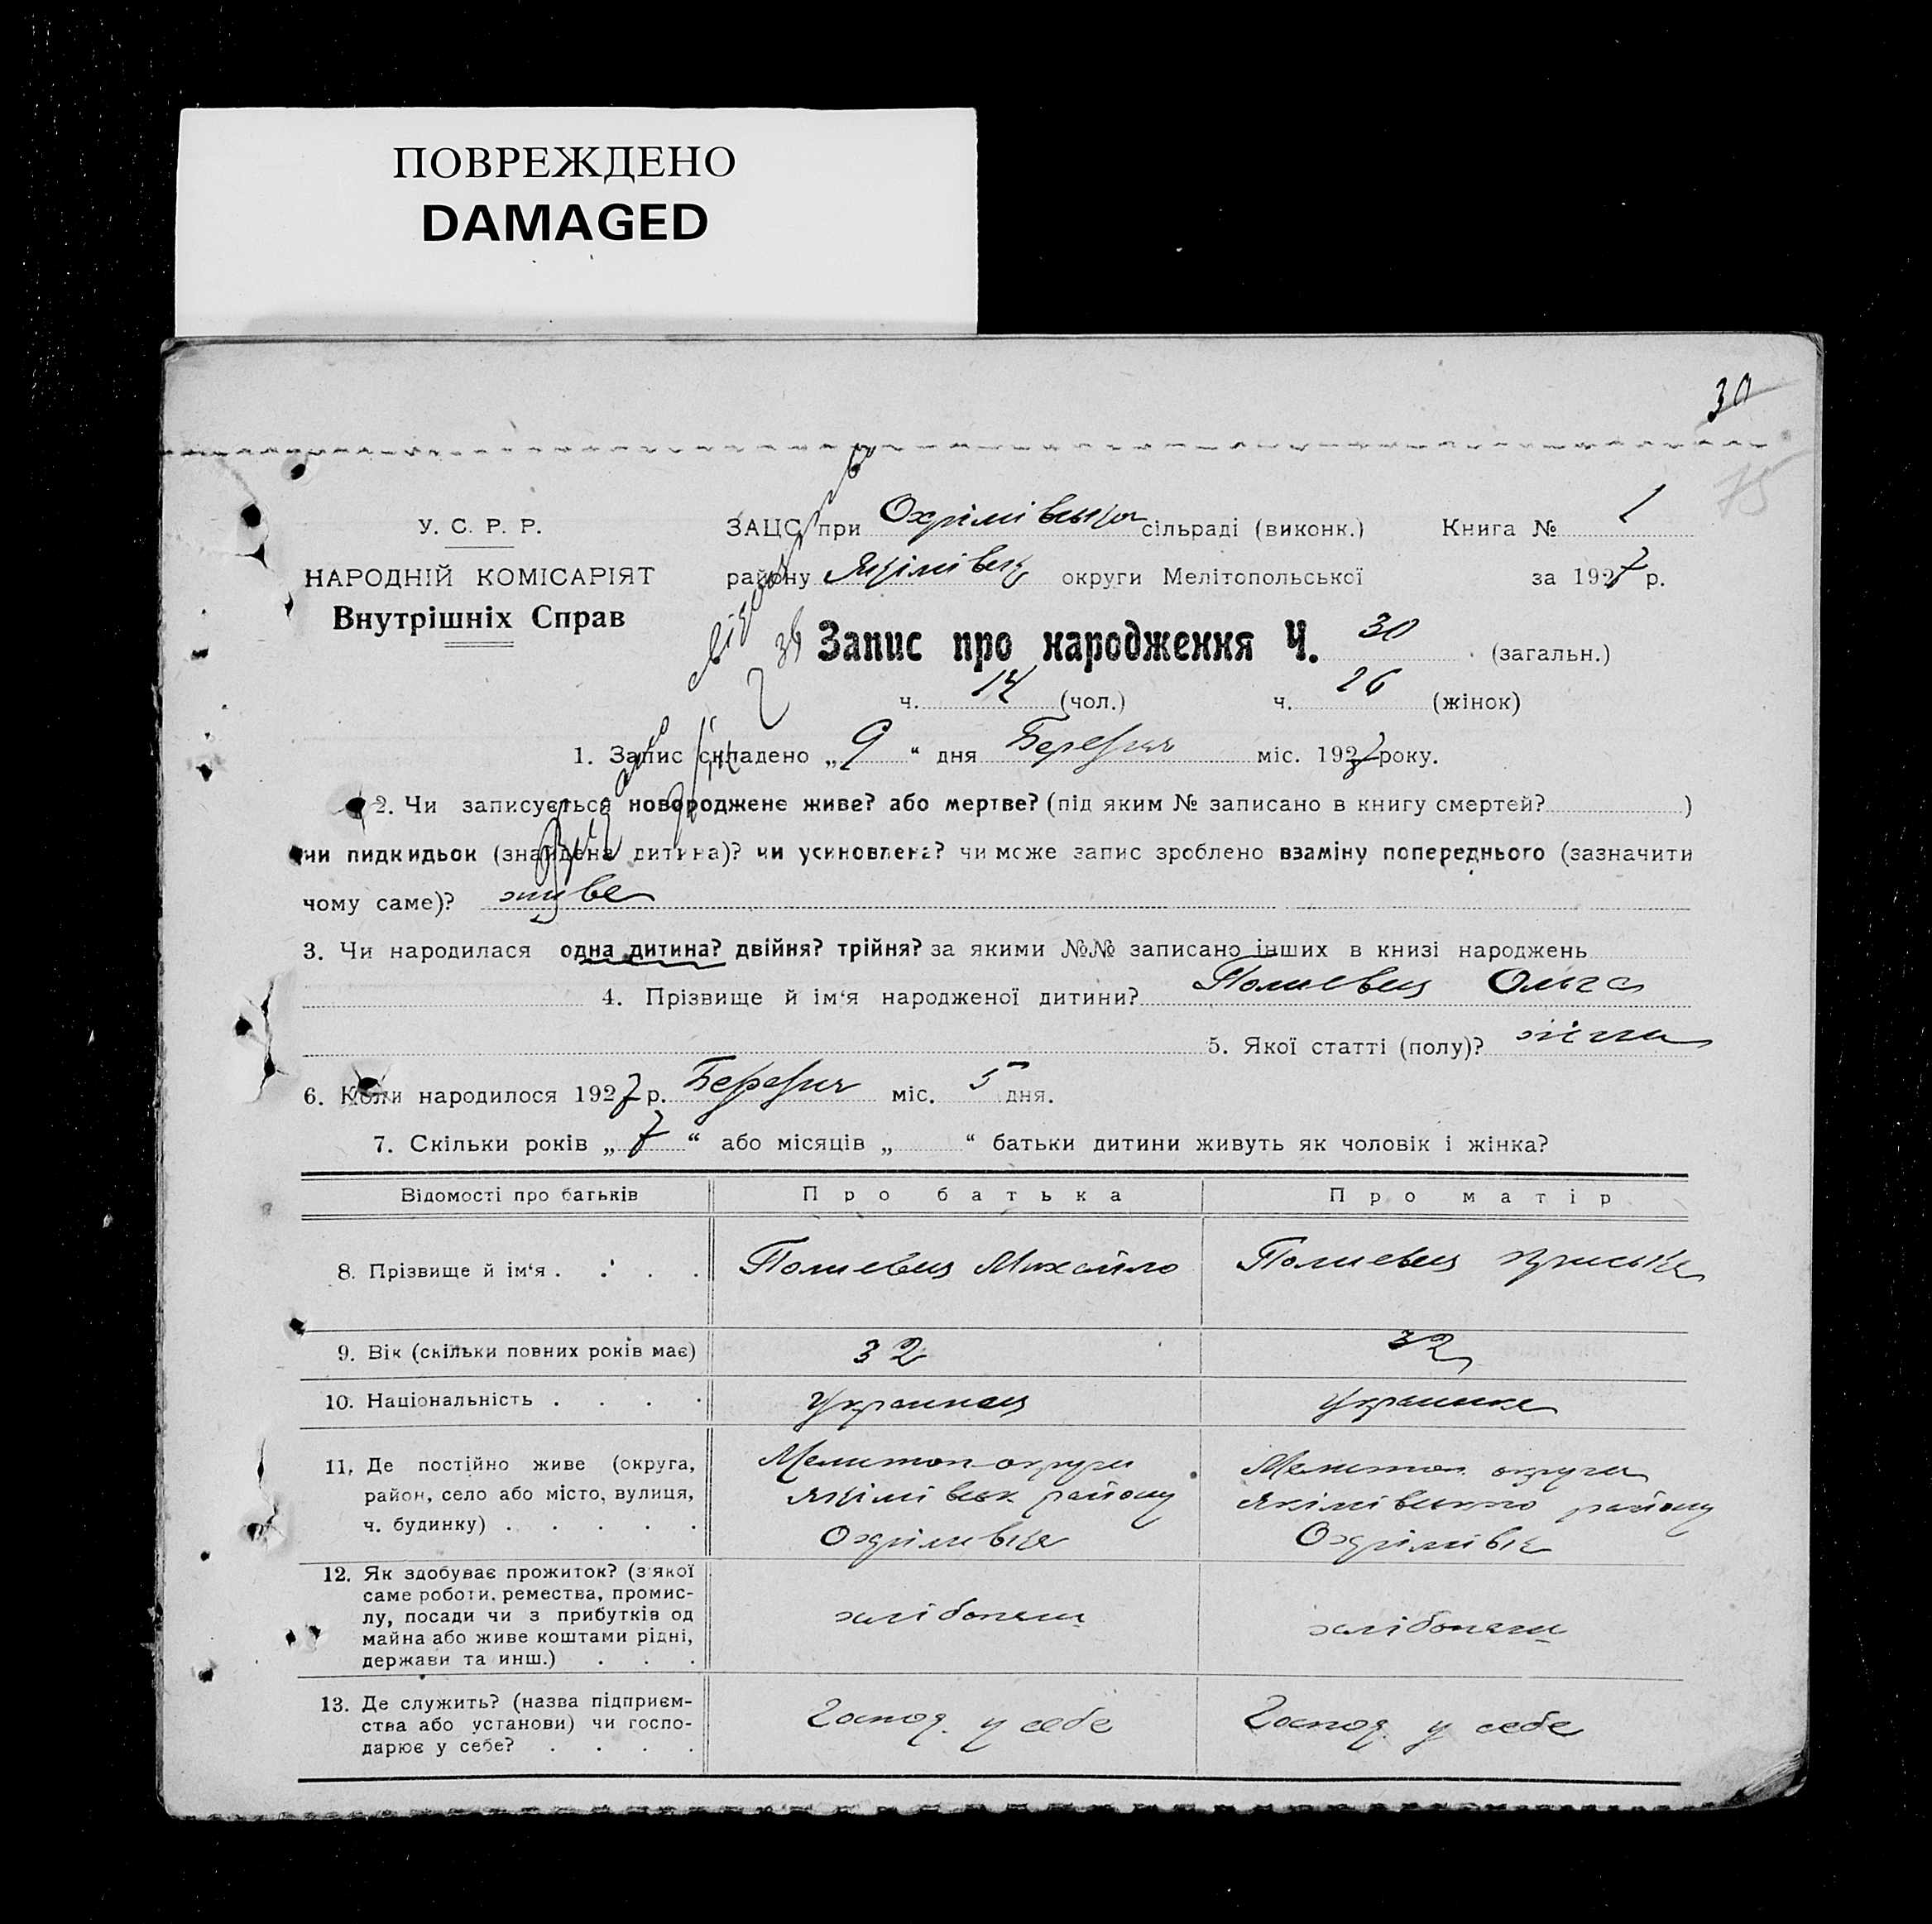 ПОВРЕЖДЕНО
DAMAGED
30
75
У. С. Р. Р.
НАРОДНІЙ КОМІСАРІЯТ
Внутрішніх Справ
ЗАЦС при Охрімівській сільраді (виконк.) Книга № 1
району Якімівськ округи Мелітопольської за 1927 р.
Запис про народження Ч. 30 (загальн.)
ч. 14 (чол.) ч. 26 (жінок)
1. Запис складено „9“ дня Березня міс. 1927 року.
2. Чи записується новороджене живе? або мертве? (під яким № записано в книгу смертей? )
чи пидкидьок (знайдена дитина)? чи усиновлена? чи може запис зроблено взаміну попереднього (зазначити
чому саме)? живе
3. Чи народилася одна дитина? двійня? трійня? за якими №№ записано інших в книзі народжень
4. Прізвище й ім‘я народженої дитини? Ольга
5. Якої статті (полу)? жіноч
6. Коли народилося 1927 р. Березня міс. 5 дня.
7. Скільки років „7“ або місяців „ “ батьки дитини живуть як чоловік і жінка?
Відомості про батьків Про батька Про матір
8. Прізвище й ім‘я . . . . Михайло
9. Вік (скільки повних років має) 32 32
10. Національність . . . . Украинец Украинка
11. Де постійно живе (округа, Мелитоп округи Мелитоп округи
район, село або місто, вулиця, Якімівськ району Якімівського району
ч. будинку) . . . . . Охрімівка Охрімівк
12. Як здобуває прожиток? (з якої
саме роботи, ремества, промис-
лу, посади чи з прибутків од хлібопаш хлібопаш
майна або живе коштами рідні,
держави та инш.) . . .
13. Де служить? (назва підприєм-
ства або установи) чи госпо- Господ. у себе Господ. у себе
дарює у себе? . . . .